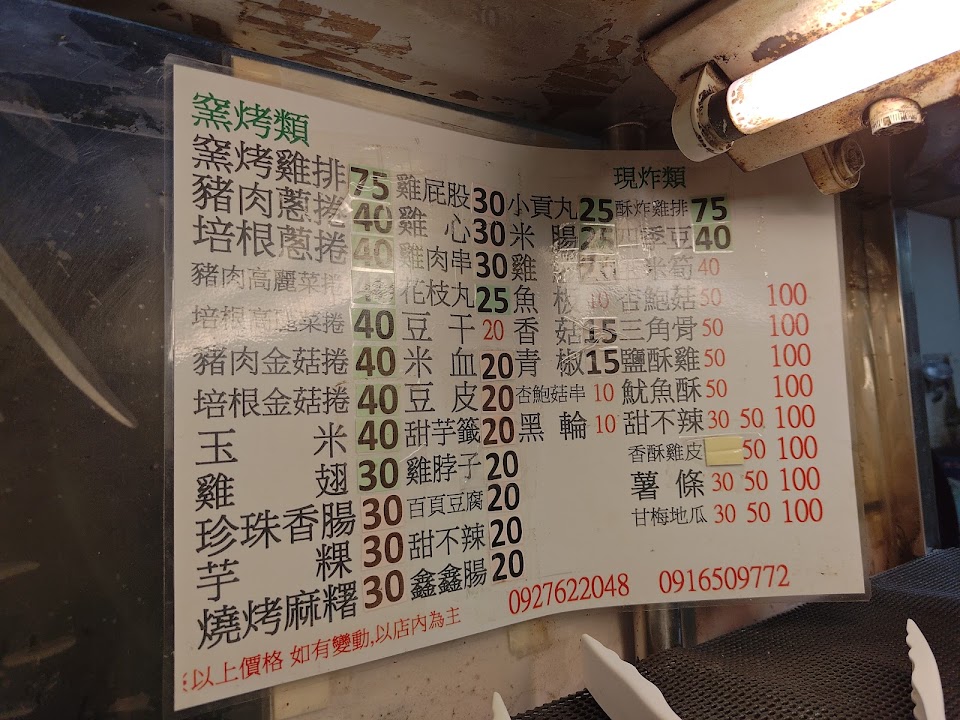 窯烤類
窯烤雞排 75
豬肉蔥捲 40
培根蔥捲 40
豬肉高麗菜捲
培根高麗菜捲 40
豬肉金菇捲 40
培根金菇捲 40
玉米 40
雞翅 30
珍珠香腸 30
芋粿 30
燒烤麻糬 30
雞屁股 30
雞心 30
雞肉串 30
花枝丸 25
豆干 20
米血 20
豆皮 20
甜芋籤 20
雞脖子 20
百頁豆腐 20
甜不辣 20
鑫鑫腸 20
小貢丸 25
米腸 25
雞
魚板 10
香菇 15
青椒 15
杏鮑菇串 10
黑輪 10
現炸類
酥炸雞排 75
四季豆 40
米筍 40
杏鮑菇 50 100
三角骨 50 100
鹽酥雞 50 100
魷魚酥 50 100
甜不辣 30 50 100
香酥雞皮 50 100
薯條 30 50 100
甘梅地瓜 30 50 100
0927622048 0916509772
※以上價格 如有變動,以店內為主